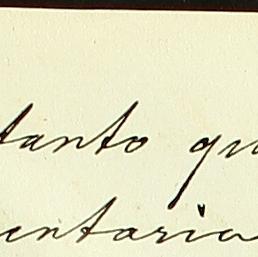 tanto qu
entario